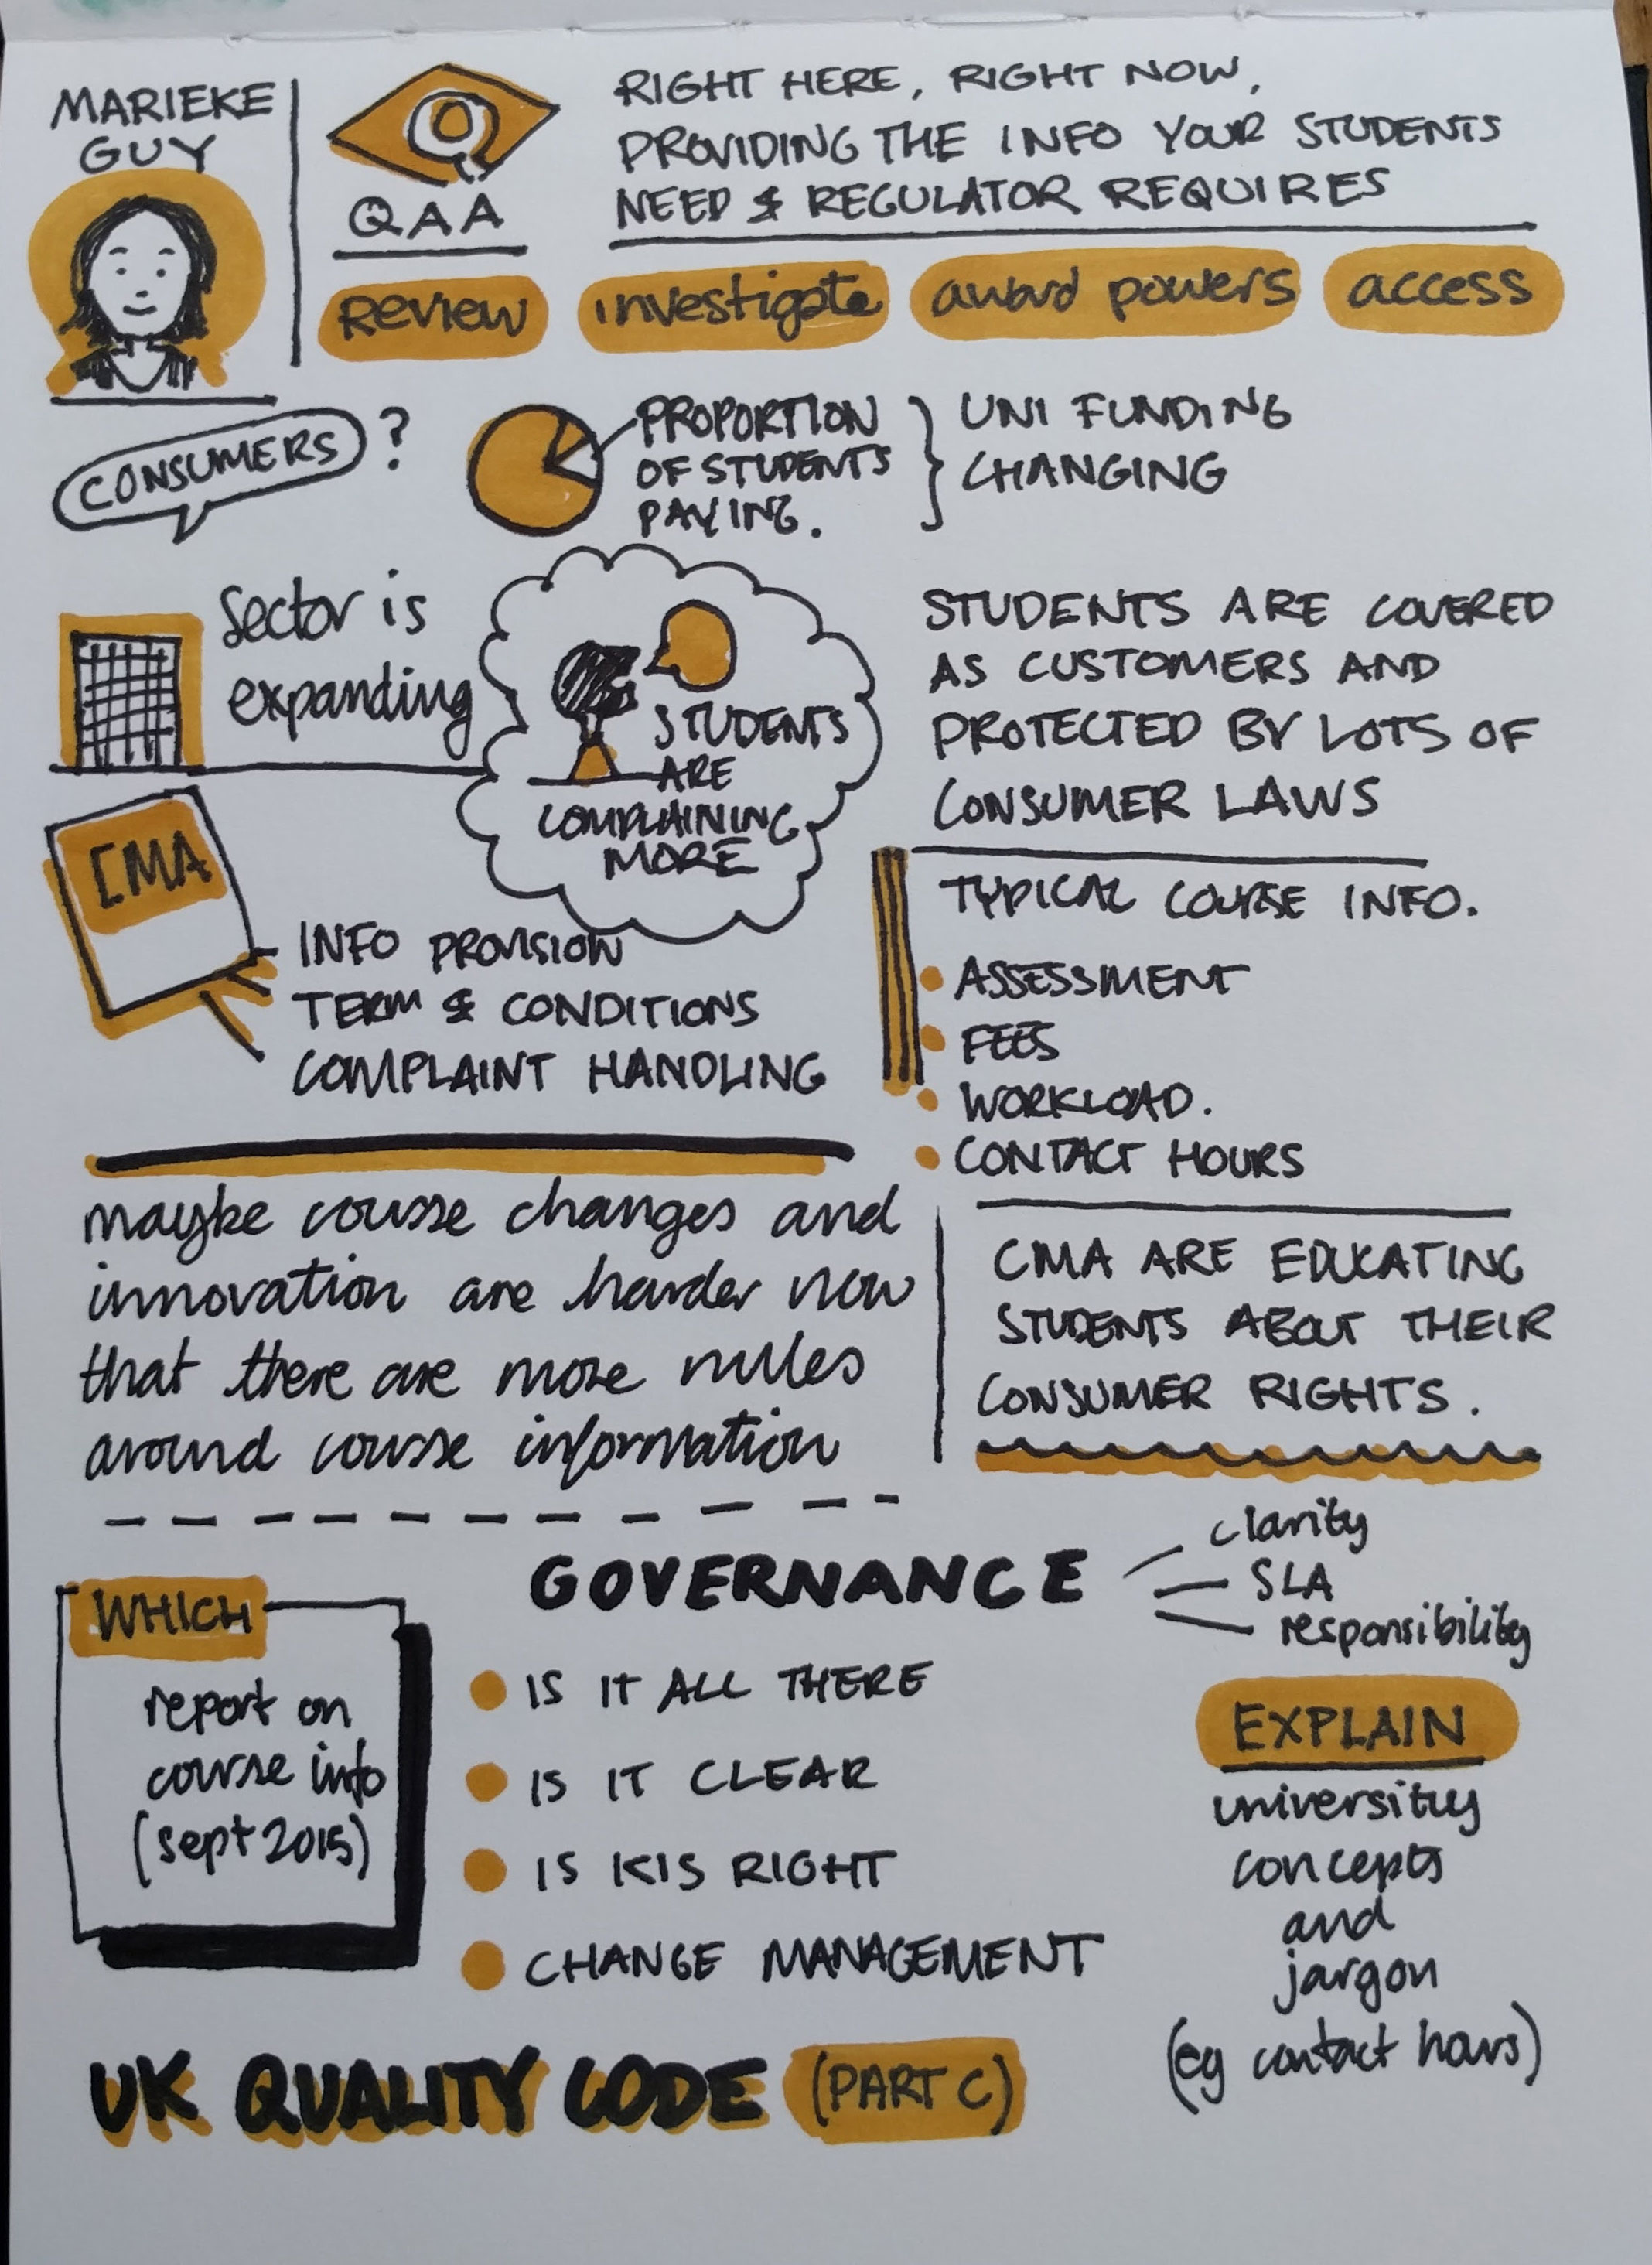 MARIEKE
GUY
QAA
RIGHT HERE, RIGHT NOW,
PROVIDING THE INFO YOUR STUDENTS
NEED & REGULATOR REQUIRES
REVIEW
investigate
award powers
access
CONSUMERS ?
PROPORTION
OF STUDENTS
PAYING.
UNI FUNDING
CHANGING
Sector is
expanding
STUDENTS
ARE
COMPLAINING
MORE
STUDENTS ARE COVERED
AS CUSTOMERS AND
PROTECTED BY LOTS OF
CONSUMER LAWS
CMA
INFO PROVISION
TERM & CONDITIONS
COMPLAINT HANDLING
TYPICAL COURSE INFO.
ASSESSMENT
FEES
WORKLOAD.
CONTACT HOURS
maybe course changes and
innovation are harder now
that there are more rules
around course information
CMA ARE EDUCATING
STUDENTS ABOUT THEIR
CONSUMER RIGHTS.
GOVERNANCE
clarity
SLA
responsibility
WHICH
report on
course info
(sept 2015)
IS IT ALL THERE
IS IT CLEAR
IS KIS RIGHT
CHANGE MANAGEMENT
EXPLAIN
university
concepts
and
jargon
(eg contact hours)
UK QUALITY CODE (PART C)